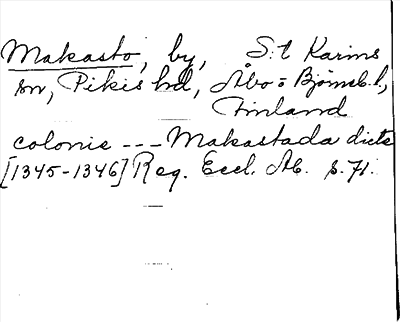 Makasto, by, S:t Karins
sn, Pikis hd, Åbo=Björneb. l,
Finland
colonie --- Makastada dicte
[1345-1346] Reg. Eccl. Ab. s. 71.